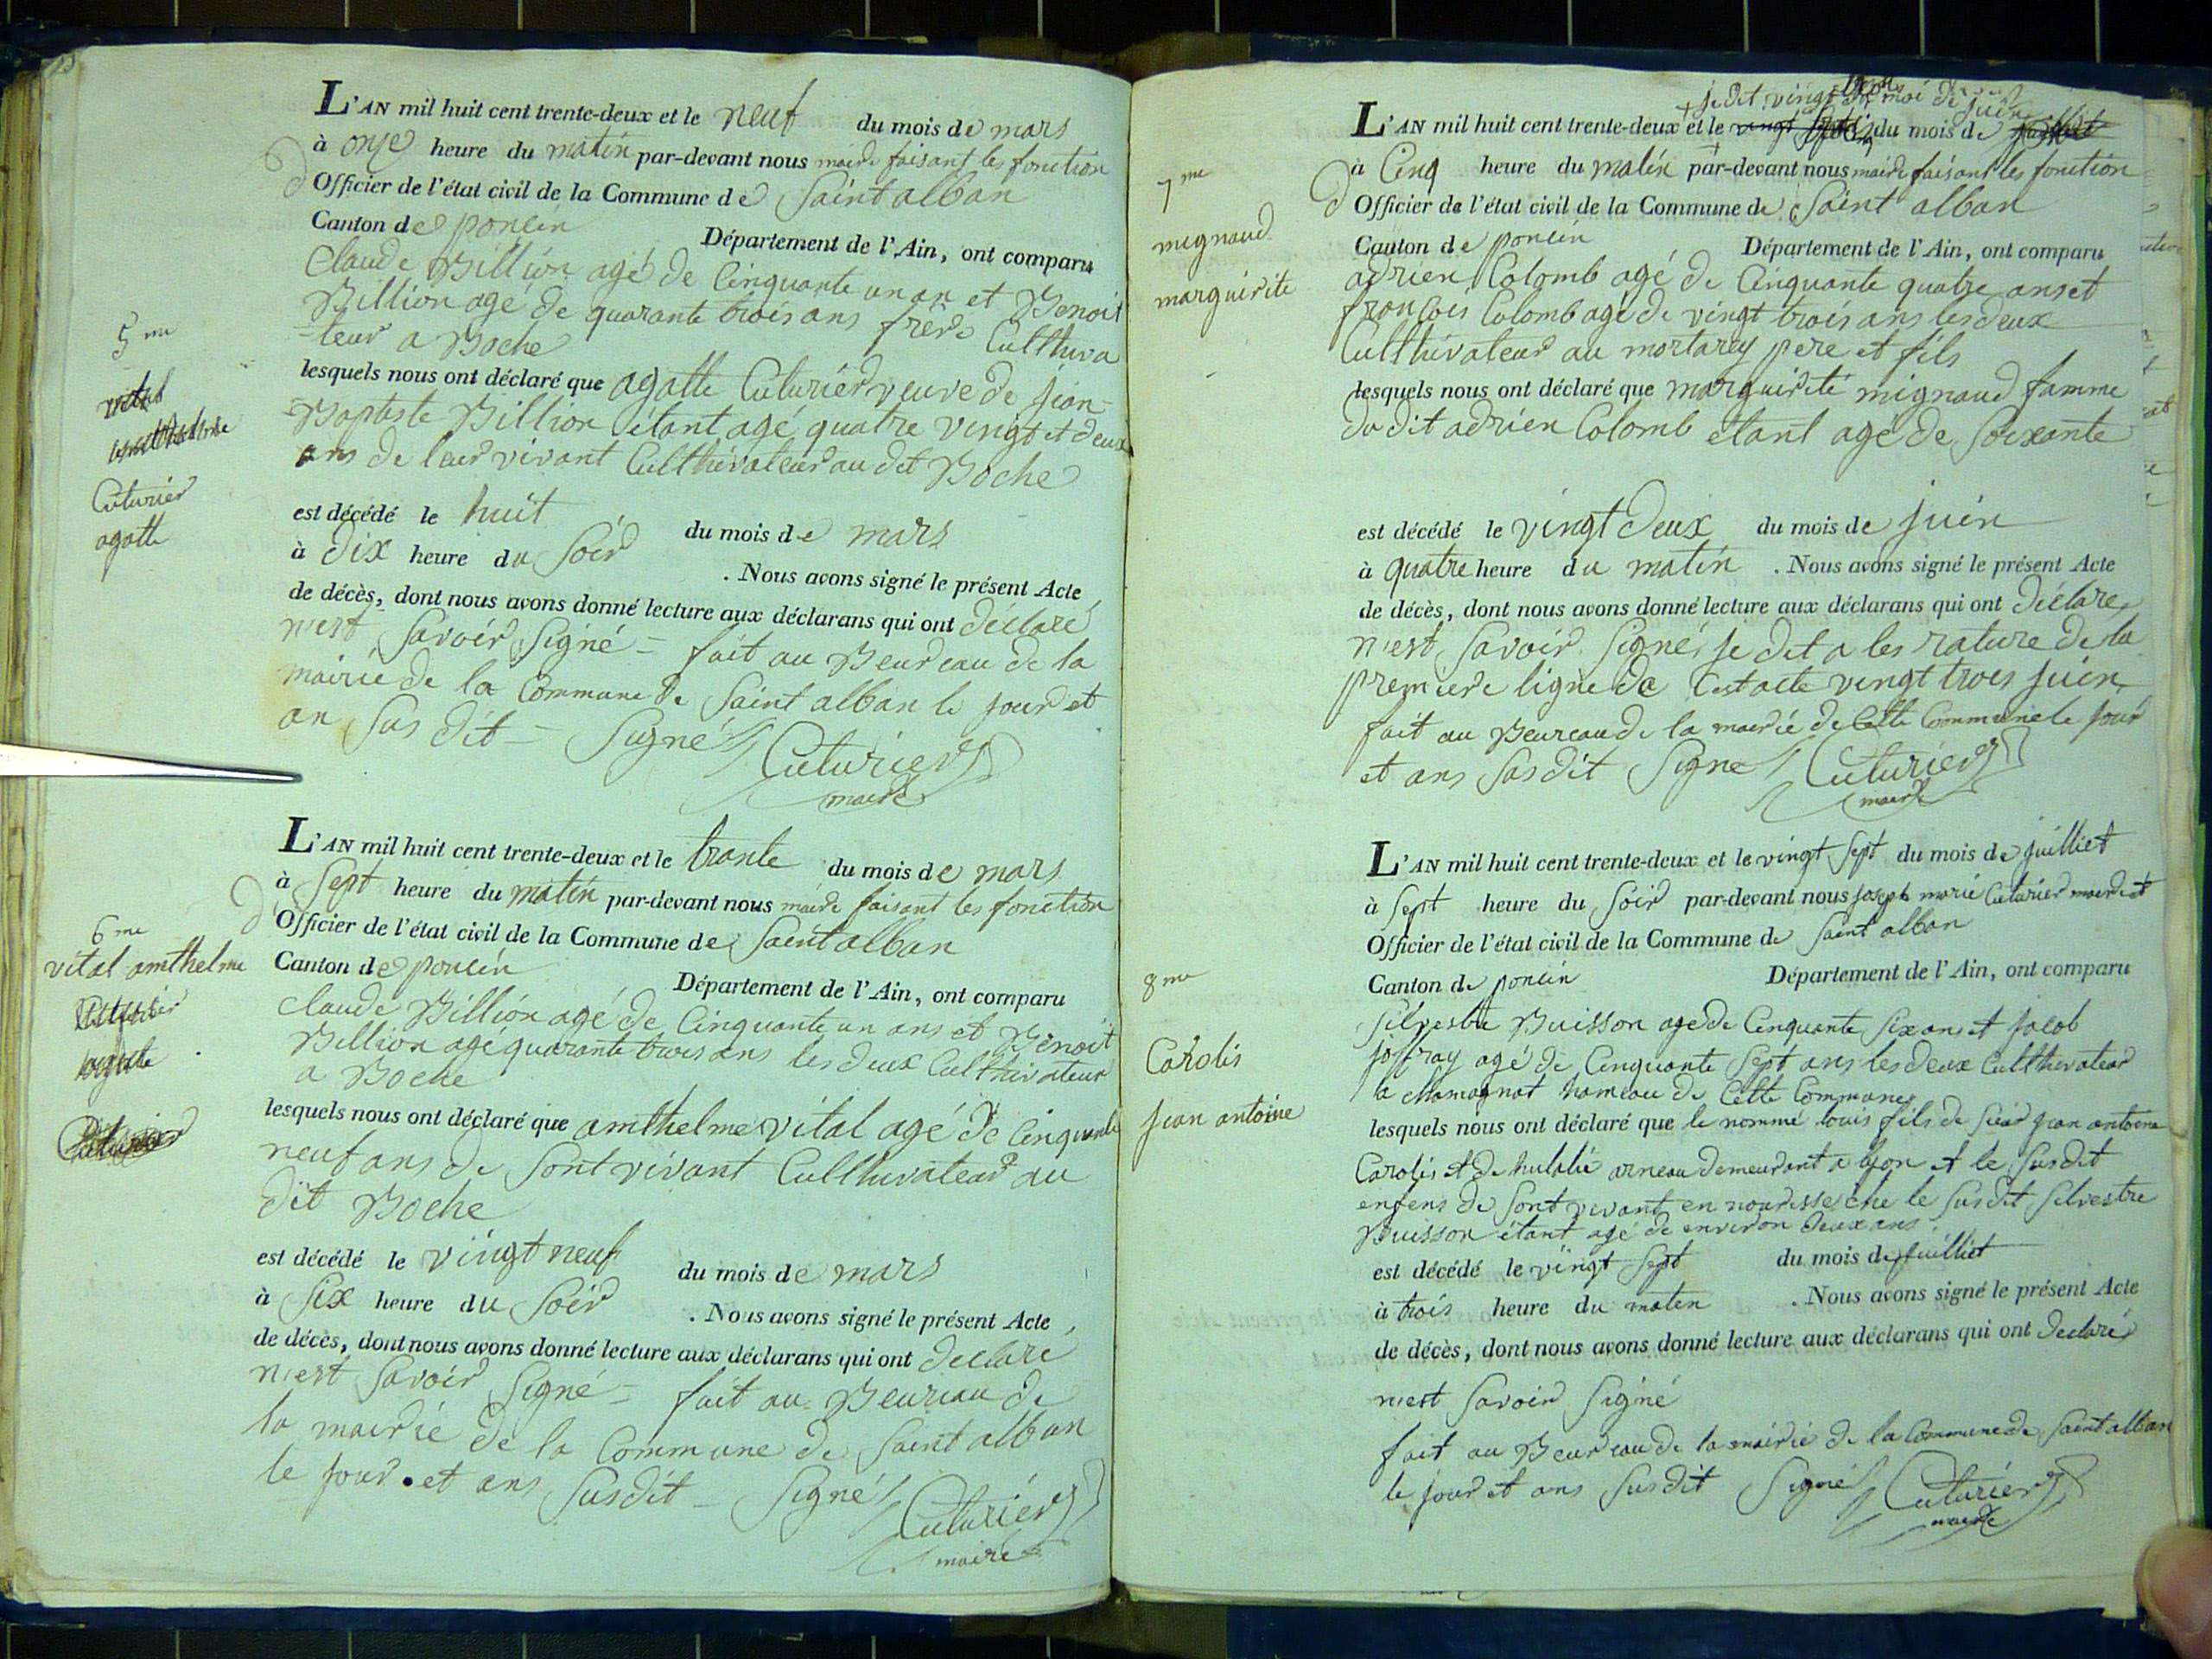 L'AN mil huit cent trente-deux et le neuf du mois de mars
à onze heure du matin par-devant nous maire faisant les fonction
d Officier de l'état civil de la Commune de Saint alban
Canton de poncin Département de l'Ain, ont comparu
Claude Billion agé de Cinquante un an et Benoit
Billion agé de quarante trois ans frère Culthiva
-teur a Boche
lesquels nous ont déclaré que agatte Cuturier veuve de jean
Baptiste Billion étant agé quatre vingt et deux
ans de leur vivant Culthivateur au dit Boche
est décédé le huit du mois de mars
à dix heure du Soir . Nous avons signé le présent Acte
de décès, dont nous avons donné lecture aux déclarans qui ont déclaré
n'est Savoir Signé = fait au Beureau de la
mairie de la Commune de Saint alban le jour et
an Sus dit - Signé Cuturier
maire
5me
vital
amthelme
Cuturier
agatte
L'AN mil huit cent trente-deux et le trante du mois de mars
à Sept heure du matin par-devant nous maire faisant les fonction
d Officier de l'état civil de la Commune de Saint alban
Canton de poncin Département de l'Ain, ont comparu
Claude Billion agé de Cinquante un ans et Benoit
Billion agé quarante trois ans les deux Culthivateur
a Boche
lesquels nous ont déclaré que amthelme vital agé de Cinquante
neuf ans de Sont vivant Culthivateur au
dit Boche
est décédé le vingt neuf du mois de mars
à Six heure du Soir . Nous avons signé le présent Acte
de décès, dont nous avons donné lecture aux déclarans qui ont déclaré
n'est Savoir Signé = fait au Beureau de
la mairie de la Commune de Saint alban
le jour et ans Susdit - Signé Cuturier
maire
6me
vital amthelme
Cuturier
agatte
Cuturier
+ je dit vingt trois moi de juin
L'AN mil huit cent trente-deux et le vingt du mois de juilliet
à Cinq heure du matin par-devant nous maire faisant les fonction
d Officier de l'état civil de la Commune de Saint alban
Canton de poncin Département de l'Ain, ont comparu
adrien Colomb agé de Cinquante quatre ans et
francois Colomb agé de vingt trois ans les deux
Culthivateur au mortarey pere et fils
lesquels nous ont déclaré que marguirite mignaud famme
du dit adrien Colomb étant agé de Soixante
est décédé le vingt deux du mois de juin
à quatre heure du matin . Nous avons signé le présent Acte
de décès, dont nous avons donné lecture aux déclarans qui ont déclare
n'est Savoir Signé, je dit a les rature de la
premiere ligne de Cest acte vingt trois juin
fait au Beureau de la mairie de Cette Commune le jour
et ans Sus dit Signé Cuturier
maire
7me
mignaud
marguirite
L'AN mil huit cent trente-deux et le vingt Sept du mois de juilliet
à Sept heure du Soir par-devant nous joseph marie Cuturier maire et
Officier de l'état civil de la Commune de Saint alban
Canton de poncin Département de l'Ain, ont comparu
Silvestre Buisson age de Cinquante Six ans et jacob
joffray agé de Cinquante Sept ans les deux Culthivateur
a Chamagnat hameau de Cette Commune
lesquels nous ont déclaré que le nommé louis fils de Sieur jean antoine
Carolis et de hulalie arneau demeurant a lyon et le Susdit
enfens de Sont vivant en nourisse chè le Susdit Silvestre
Buisson étant agé de environ deux ans
est décédé le vingt Sept du mois de juilliet
à trois heure du maten . Nous avons signé le présent Acte
de décès, dont nous avons donné lecture aux déclarans qui ont declaré
n'est Savoir Signé
fait au Beureau de la mairie de la Commune de Saint alban
le jour et ans Susdit Signé Cuturier
maire
8me
Carolis
jean antoine